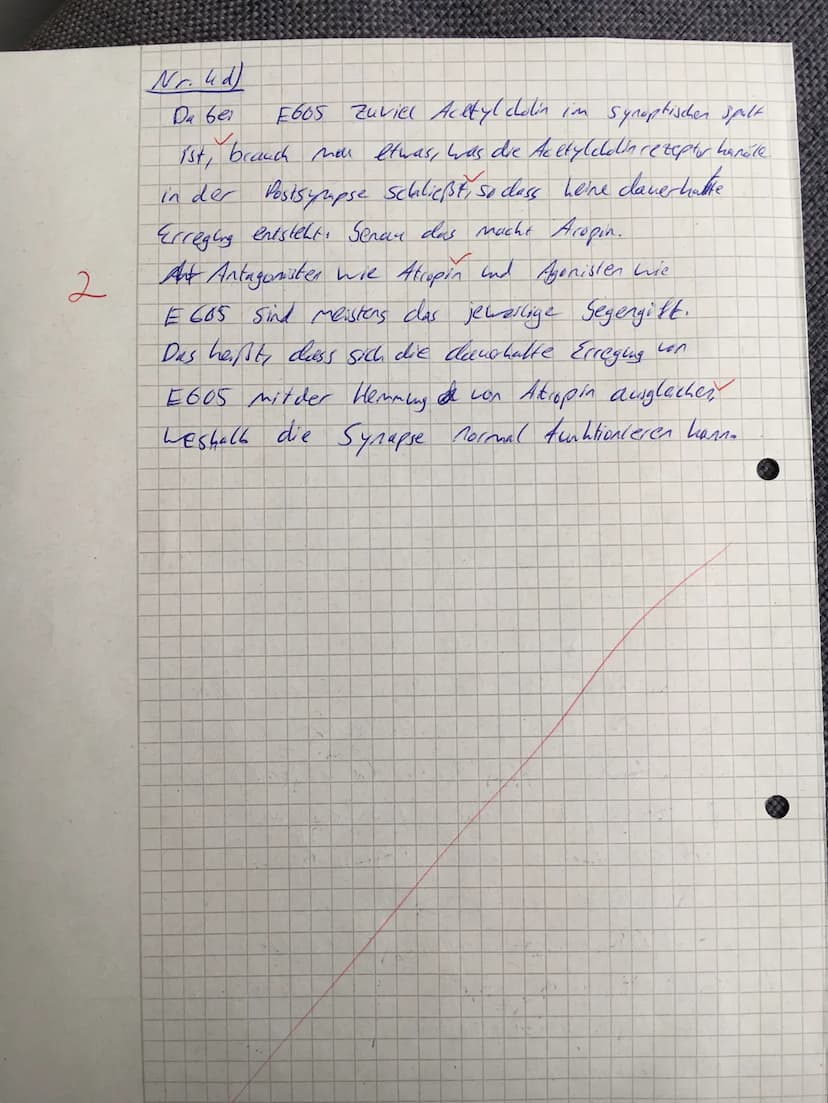 Nr. 4d)
Da bei E605 zuviel Acetylcholin im synaptischen Spalt
ist, brauch man etwas, was die Acetylcholinrezeptorkanäle
in der Postsynapse schließt, so dass keine dauerhafte
Erregung entsteht. Genau das macht Aropin.
Antagonisten wie Atropin und Agonisten wie
E605 sind meistens das jeweilige Gegengift.
Das heißt, dass sich die dauerhafte Erregung von
2
E605 mit der Hemmung von Atropin ausglachen,
weshalb die Synapse normal funktionieren kann.